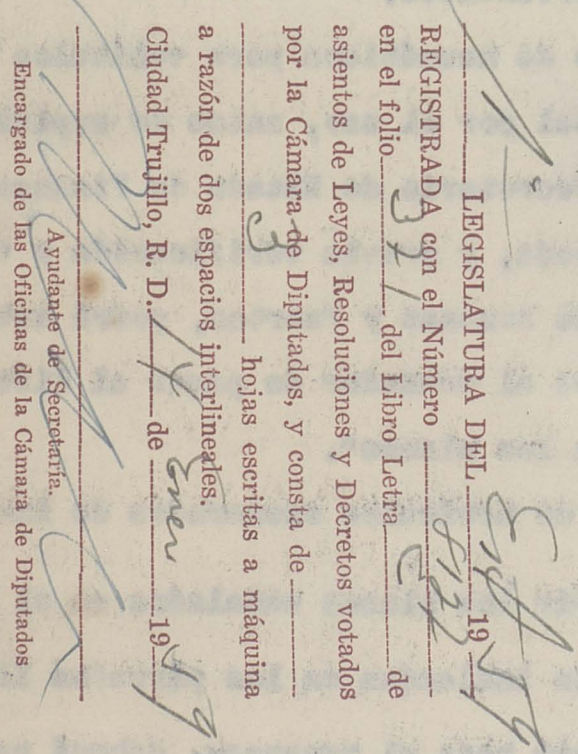 LEGISLATURA DEL 19 49
REGISTRADA con el Número
en el folio 321 del Libro Letra de
asientos de Leyes Resoluciones y Decretos votados
por la Cámara de Diputados, y consta de
3 hojas escritas a máquina
a razón de dos espacios interlineales.
Ciudad Trujillo, R. D. de Enero 19 49
Ayudante de Secretaría.
Encargado de las Oficinas de la Cámara de Diputados